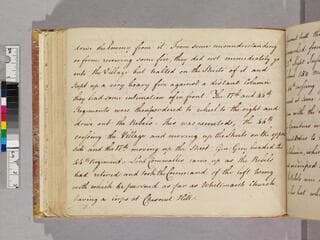 drive the Enemy from it. From some misunderstanding
or from receiving some fire, they did not immediately go
into the Village but halted on the Skirts of it and
kept up a very heavy fire against a distant Column
they had some intimation of in front. The 17th and 44th
Regiments were therefore ordered to wheel to the right and
drive out the Rebels. This was executed, the 44th
crossing the Village and moving up the Skirts on the oppo-
side and the 17th moving up the Street. Gen. Grey headed the
44th Regiment. Lord Cornwallis came up as the Rebels
had retired and took the Command of the left Wing
with which he pursued as far as Whitemarsh Church
leaving a corps at Chesnut Hill.